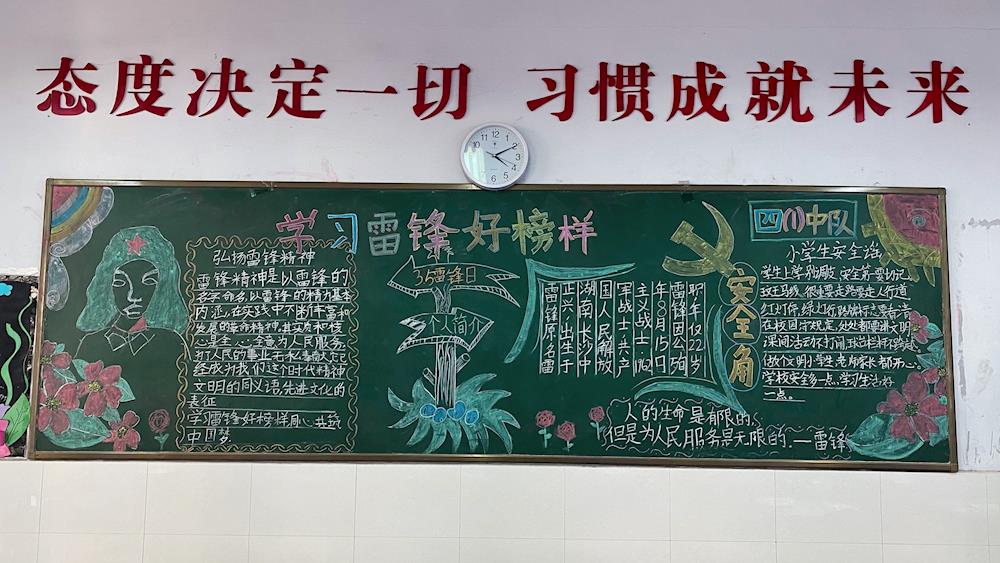 态度决定一切 习惯成就未来
学习雷锋好榜样
弘扬雷锋精神
雷锋精神是以雷锋的
名字命名,以雷锋的精神基本
内涵,在实践中不断丰富和
发展的革命精神,其实质和核
心是全心全意为人民服务,
为了人民的事业无私奉献,它已
经成为我们这个时代精神
文明的同义语,先进文化的
表征
学习雷锋好榜样
中国梦
3.5雷锋日
个人简介
雷锋原名雷
正兴,出生于
湖南长沙中
国人民解放
军战士,共产
主义战士,1962
年8月15日
雷锋因公殉
职,年仅22岁
人的生命是有限的,
但是为人民服务是无限的.一雷锋
安全角
四(1)中队
小学生安全谣
安全第一要切记
红灯停,绿灯行
在校园守规定
学校安全多一点,学习生活好
一点。
12
11
1
10
2
9
3
8
4
7
5
6